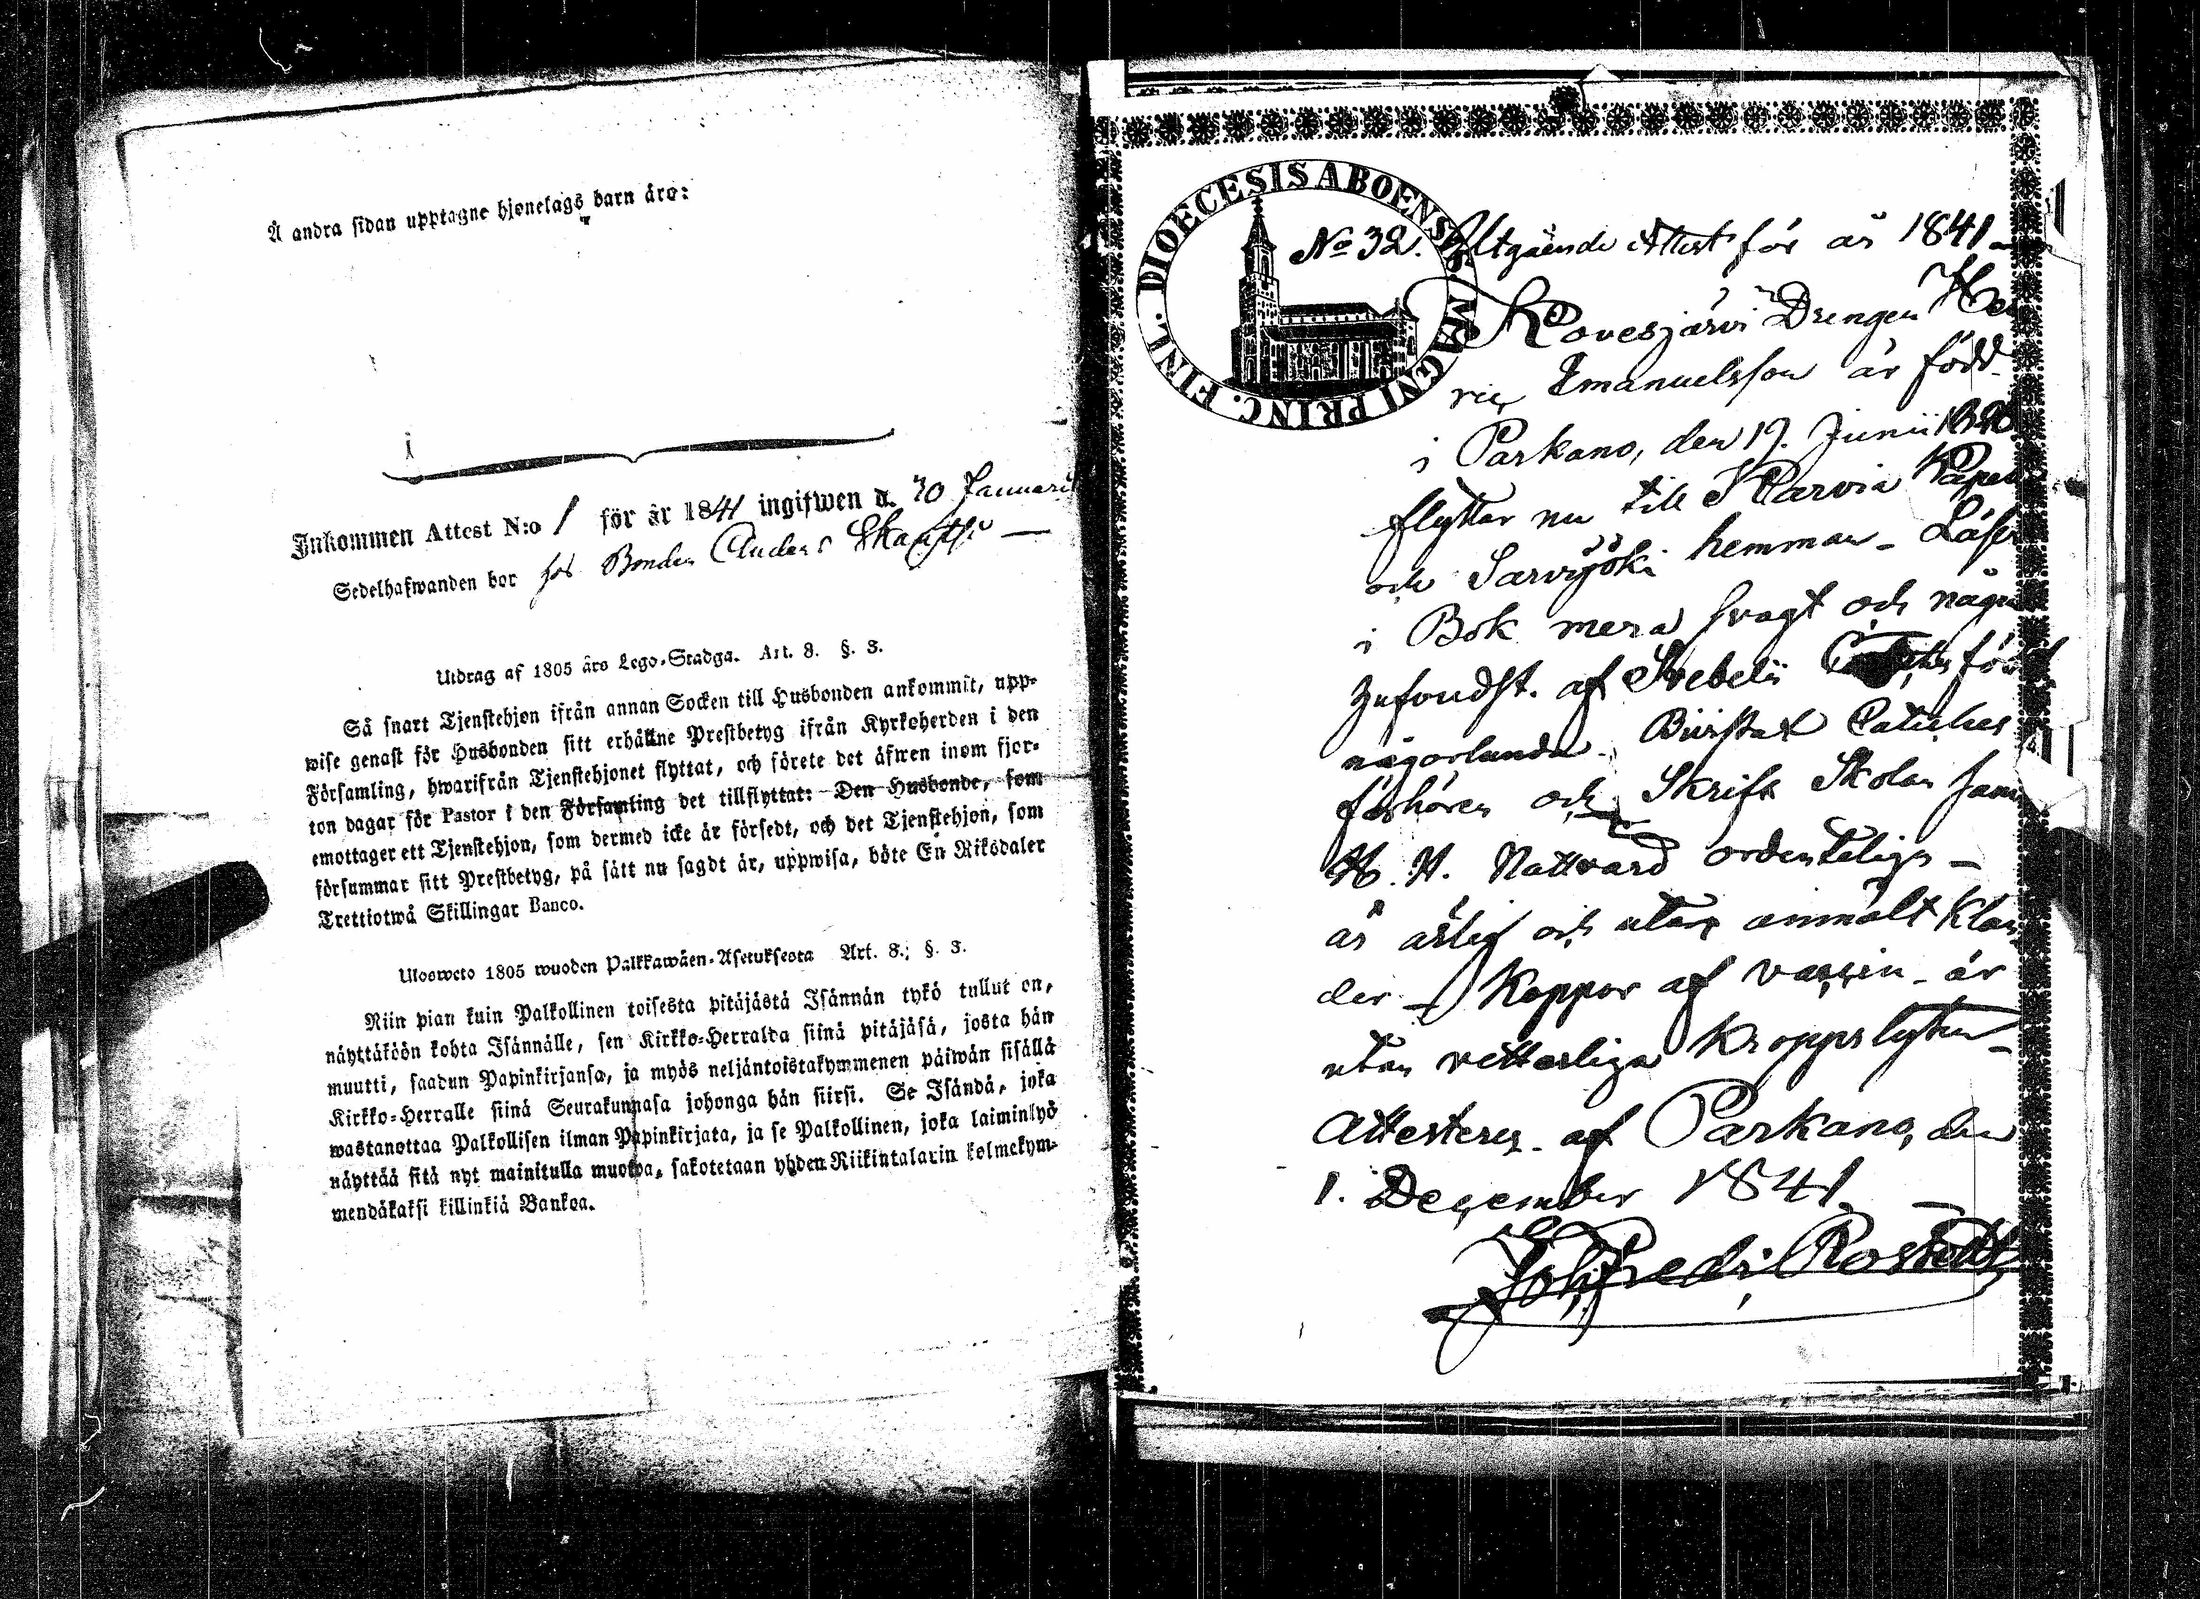 Å andra sidan upptagne hjonelags barn äro:
Inkommen Attest N:o 1 för år 1841 ingifwen d. 30 Januarii
Sedelhafwanden bor hos Bonden Anders
Utdrag af 1805 års Lego-Stadga. Art. 8. §. 3.
Så snart Tjenstehjon ifrån annan Socken till Husbonden ankommit, upp-
wise genast för Husbonden sitt erhållne Prestbetyg ifrån Kyrkoherden i den
Församling, hwarifrån Tjenstehjonet flyttat, och förete det äfwen inom fjor-
ton dagar för Pastor i den Församling det tillflyttat: Den Husbonde, som
emottager ett Tjenstehjon, som dermed icke är försedt, och det Tjenstehjon, som
försummar sitt Prestbetyg, på sätt nu sagdt är, uppwisa, böte En Riksdaler
Trettiotwå Skillingar Banco.
Ulosweto 1805 wuoden Palkkawäen-Asetuksesta Art. 8.; §. 3.
Niin pian kuin Palkollinen toisesta pitäjästä Isännän tykö tullut on,
näyttäköön kohta Isännälle, sen Kirkko-Herralda siinä pitäjäsä, josta hän
muutti, saadun Papinkirjansa, ja myös neljäntoistakymmenen päiwän sisällä
Kirkko-Herralle siinä Seurakunnasa johonga hän siirsi. Se Isändä, joka
wastanottaa Palkollisen ilman Papinkirjata, ja se Palkollinen, joka laiminlyö
näyttää sitä nyt mainitulla muotoa, sakotetaan yhden Riikintalarin kolmekym-
mendäkaksi killinkiä Bankoa.
DIOECESIS ABOENSIS. MAGNI PRINC. FINL.
No 32. Utgående Attest för år 1841
Kovesjärvi Drengen Hen
ric Emanuelsson är född
i Parkano, den 19. Junii
flyttar nu till Karvia Kapell
och Sarvijöki hemman - Läser
i Bok mera svagt och någu
af Svebelii för
någorlunda. Bivistat Catiches
förhören och Skrift Skolan samt
H. H. Nattvard ordenteligen -
är ärlig och utan anmält klan
der - Koppor af vaccin - är
utan vetterliga kroppslyten -
Attesteras af Parkano, den
1. December 1841
Joh. Fredr. Rostedt